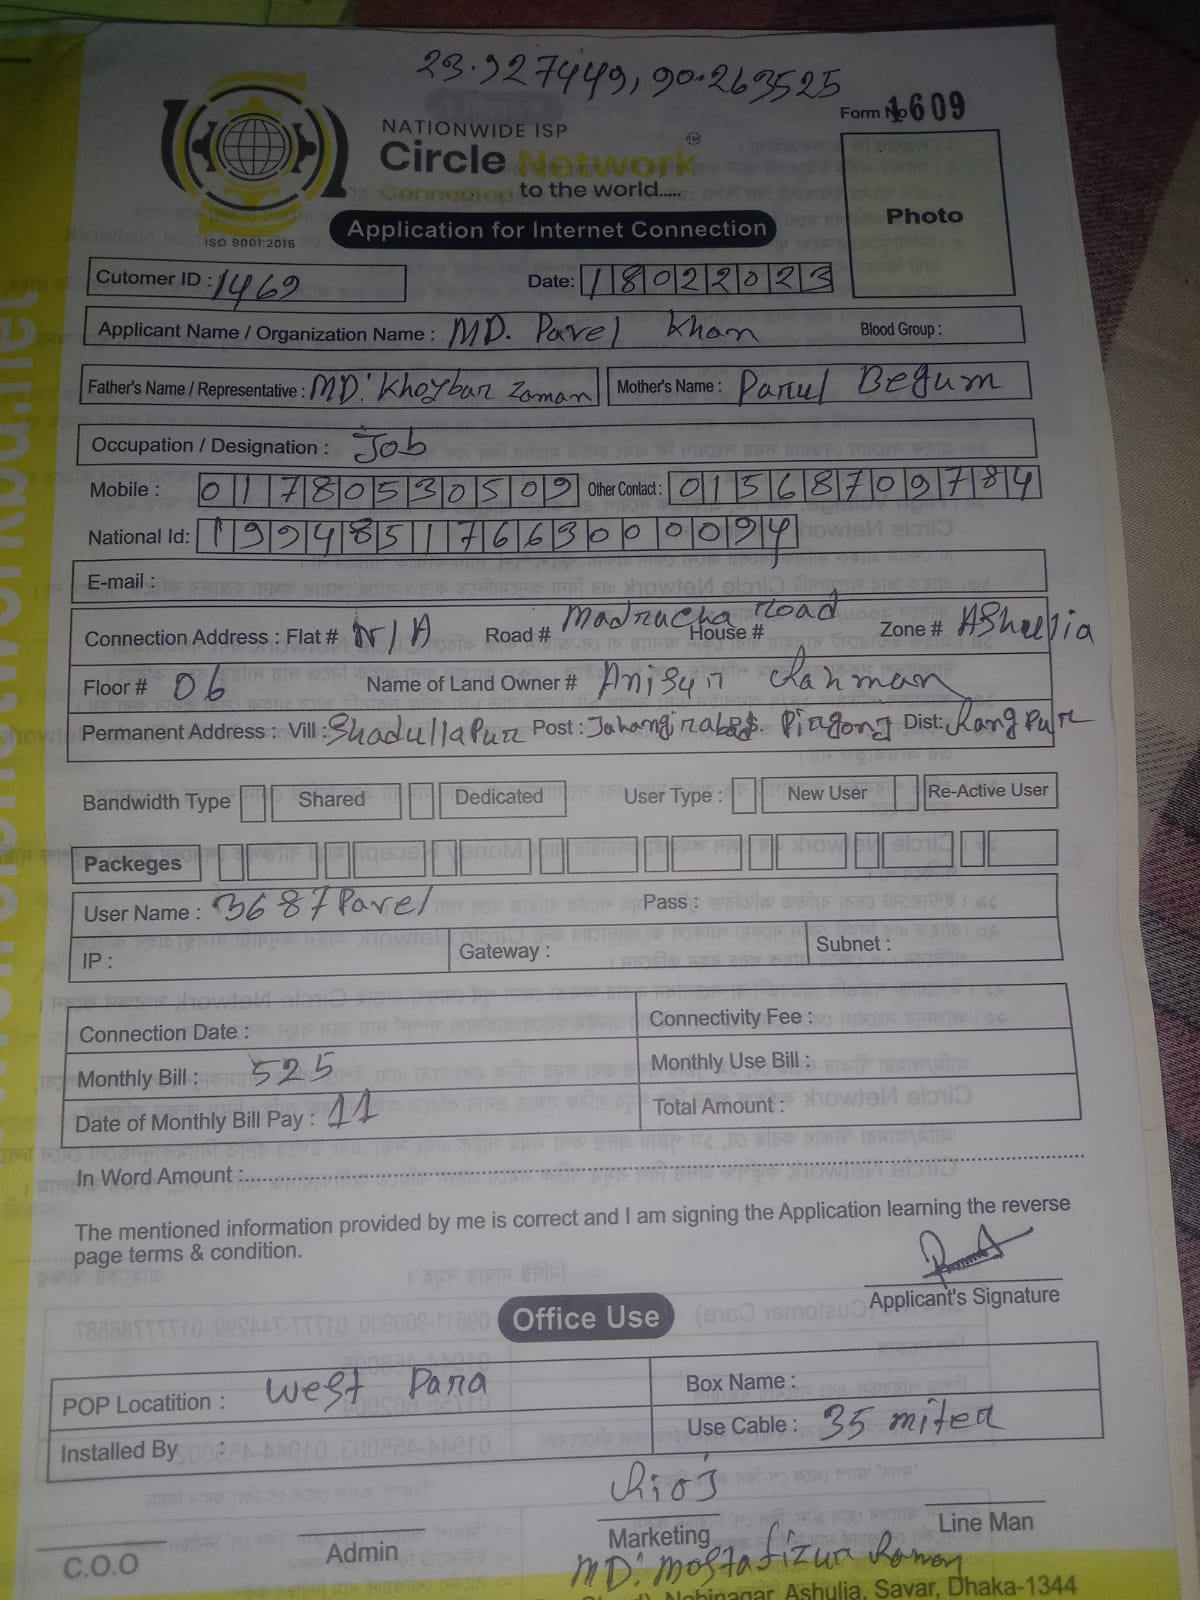 23.927449, 90.263525
Form No 1609
NATIONWIDE ISP
Circle Network ™
Connected to the world.....
ISO 9001:2015
Application for Internet Connection
Photo
Cutomer ID : 1469 Date: 18022023
Applicant Name / Organization Name : MD. Pavel Khan Blood Group :
Father's Name / Representative : MD. Khoybar Zaman Mother's Name : Parul Begum
Occupation / Designation : Job
Mobile : 01780530509 Other Contact : 01568709784
National Id: 19948517663000094
E-mail :
Connection Address : Flat # N/A Road # Madracha Road House # Zone # AShulia
Floor # 06 Name of Land Owner # Anisur Rahman
Permanent Address : Vill : Shadullapur Post : Jahangirabad. Pirgonj Dist: Rangpur
Bandwidth Type Shared Dedicated User Type : New User Re-Active User
Packeges
User Name : 3687Pavel Pass :
IP : Gateway : Subnet :
Connection Date : Connectivity Fee :
Monthly Bill : 525 Monthly Use Bill :
Date of Monthly Bill Pay : 11 Total Amount :
In Word Amount :
The mentioned information provided by me is correct and I am signing the Application learning the reverse
page terms & condition.
Applicant's Signature
Office Use
POP Locatition : West Para Box Name :
Installed By : Use Cable : 35 miter
C.O.O Admin Marketing Line Man
MD. Mostafizur Raman
Nobinagar, Ashulia, Savar, Dhaka-1344